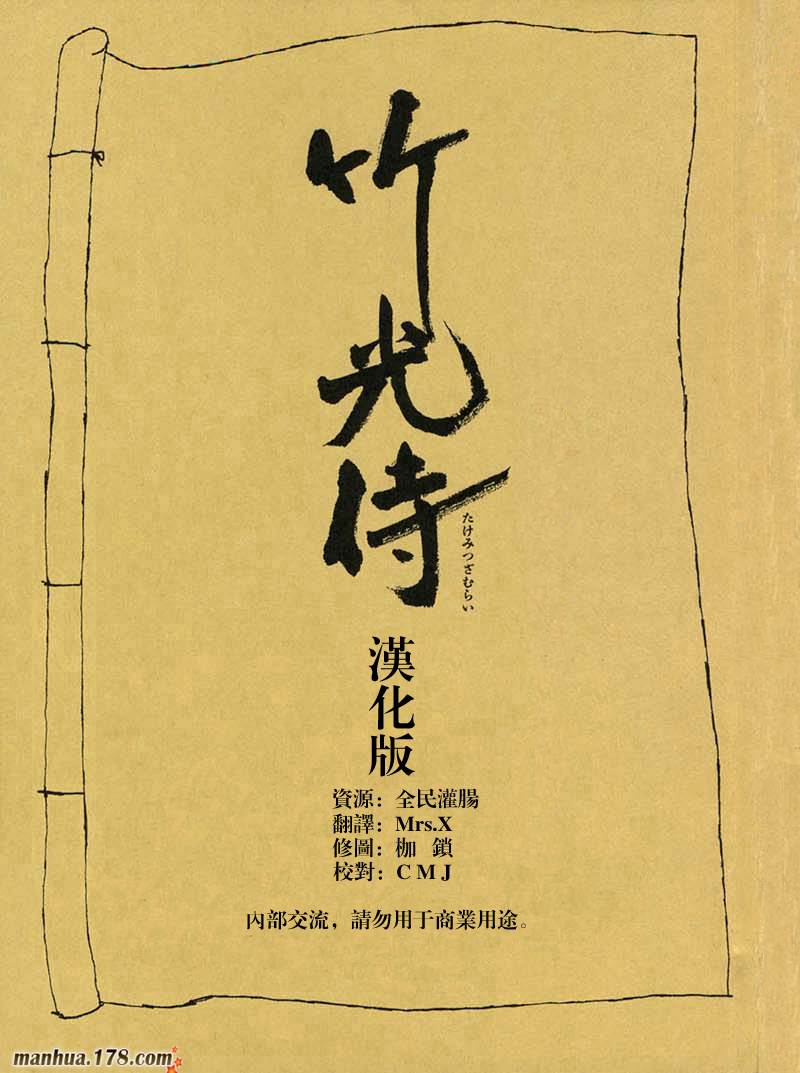 竹光侍
たけみつざむらい
漢化版
資源：全民灌腸
翻譯：Mrs.X
修圖：枷 鎖
校對：C M J
內部交流，請勿用于商業用途。
manhua.178.com